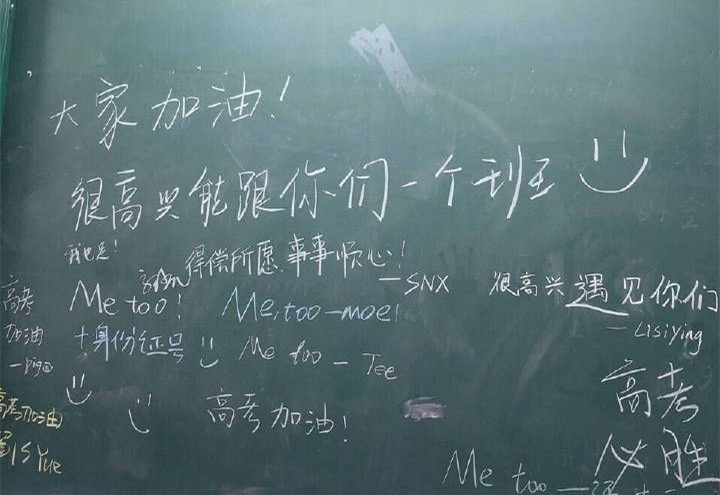 大家加油!
很高兴能跟你们一个班
我也是!
得偿所愿 事事顺心!
—SNX
很高兴遇见你们
—Lisiying
高考
加油
Me too!
Me too—moe!
+身份证号
Me too — Tee
高考加油
Yue
高考加油!
高考
必胜
Me too —